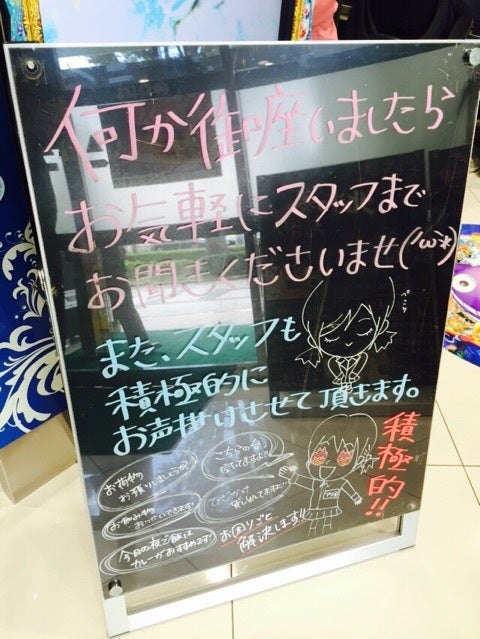 何か御座いましたら
お気軽にスタッフまで
お聞きくださいませ(*'ω'*)
ぺこり
また、スタッフも
積極的に
お声掛けさせて頂きます。
積極的!!
お荷物
お預りしましょうか?
こちらの台
空いてますよ!!
お飲み物
今日の夜ご飯は
カレーがおすすめです!
お困りごと
解決します!!